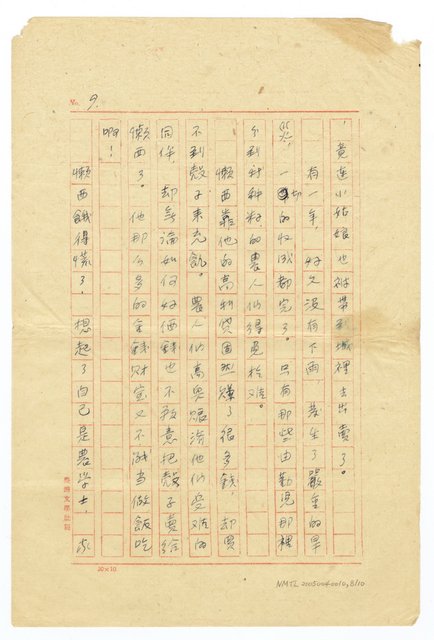 No. 9.
，黃連小姑娘也被帶到城裡去出賣了。
有一年，好久沒有下雨，發生了嚴重的旱
災，一切的收成都完了。只有那些由勤兒那裡
分到新種籽的農人們得免於难。
懶西靠他的高利貸固然賺了很多錢，却買
不到穀子來充飢。農人們高興賑濟他們受难的
同伴，却無論如何好価錢也不敢意把穀子賣給
懶西了。他那么多的金錢財宝又不能当做飯吃
啊！
懶西餓得慌了，想起了自己是農學士，求
臺灣文學社製
20×10
NMTL 20050040010, 8/10